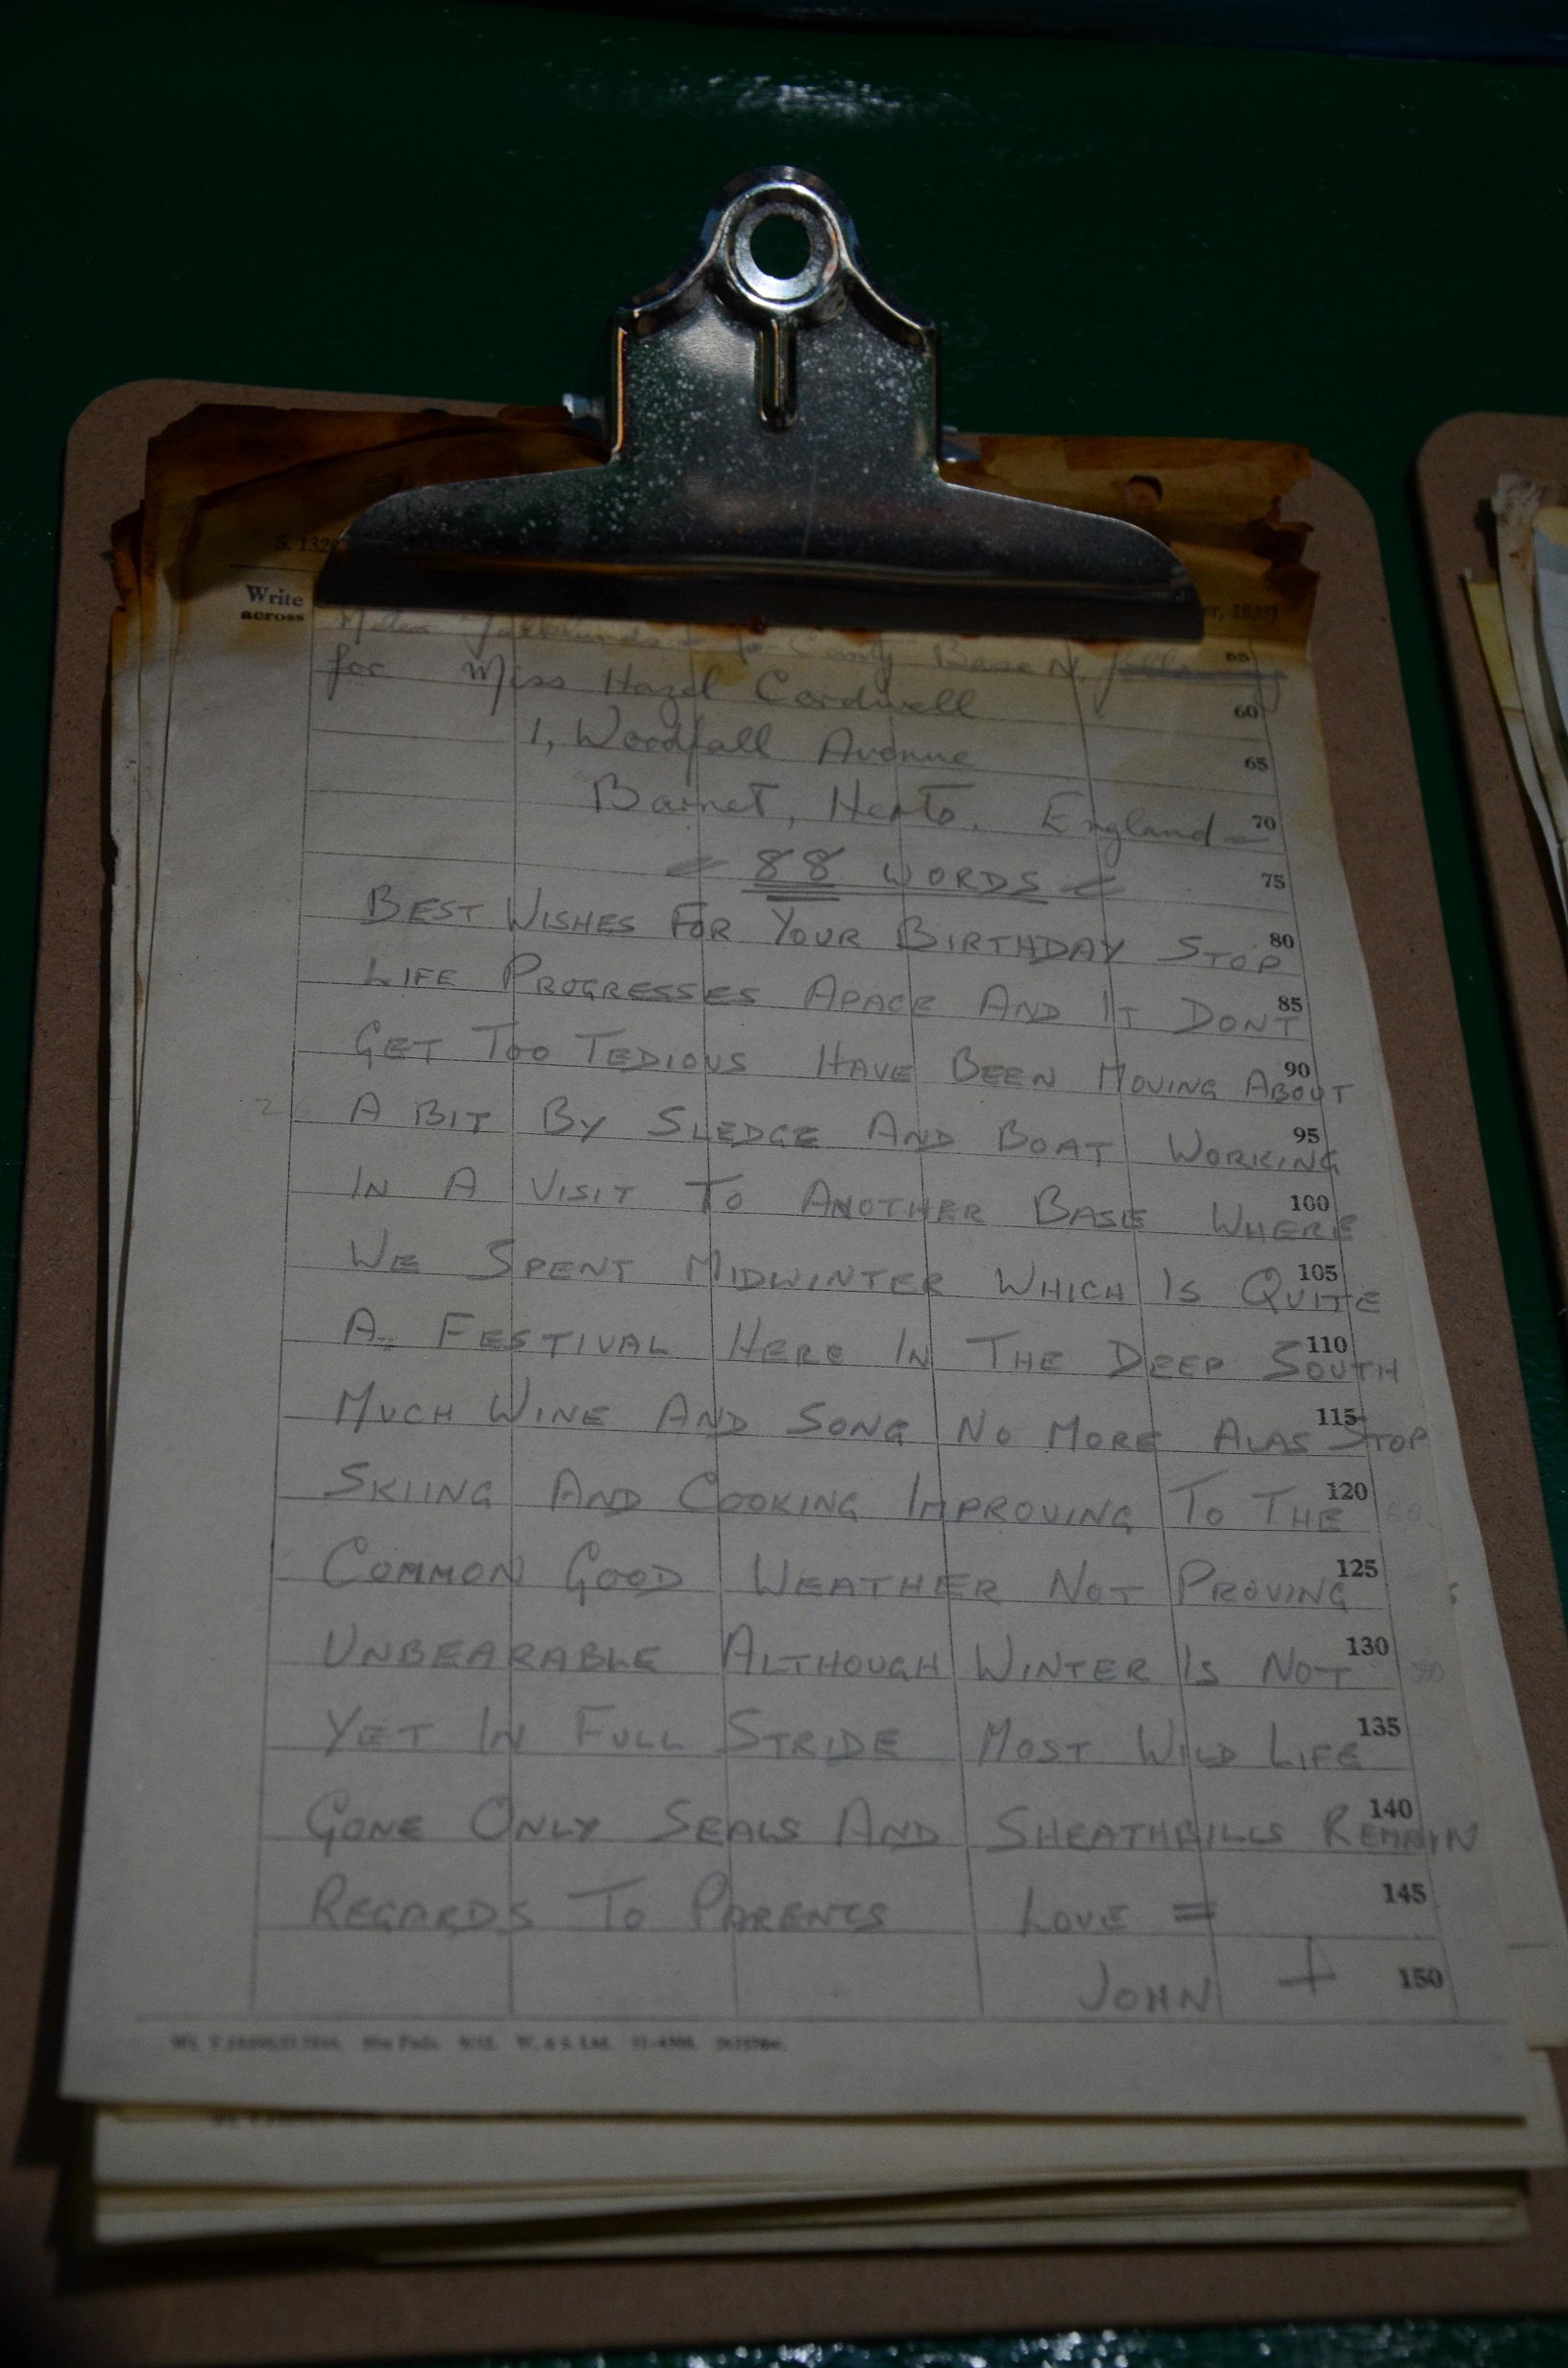 S. 132
Write
across
er, 1935)
Base N. 55
for Miss Hazel Cordwell 60
1, Woodfall Avenue 65
Barnet, Herts. England 70
= 88 WORDS = 75
BEST WISHES FOR YOUR BIRTHDAY STOP 80
LIFE PROGRESSES APACE AND IT DONT 85
GET TOO TEDIOUS HAVE BEEN MOVING ABOUT 90
A BIT BY SLEDGE AND BOAT WORKING 95
IN A VISIT TO ANOTHER BASE WHERE 100
WE SPENT MIDWINTER WHICH IS QUITE 105
A FESTIVAL HERE IN THE DEEP SOUTH 110
MUCH WINE AND SONG NO MORE ALAS STOP 115
SKIING AND COOKING IMPROVING TO THE 120
COMMON GOOD WEATHER NOT PROVING 125
UNBEARABLE ALTHOUGH WINTER IS NOT 130
YET IN FULL STRIDE MOST WILD LIFE 135
GONE ONLY SEALS AND SHEATHBILLS REMAIN 140
REGARDS TO PARENTS LOVE = 145
JOHN + 150